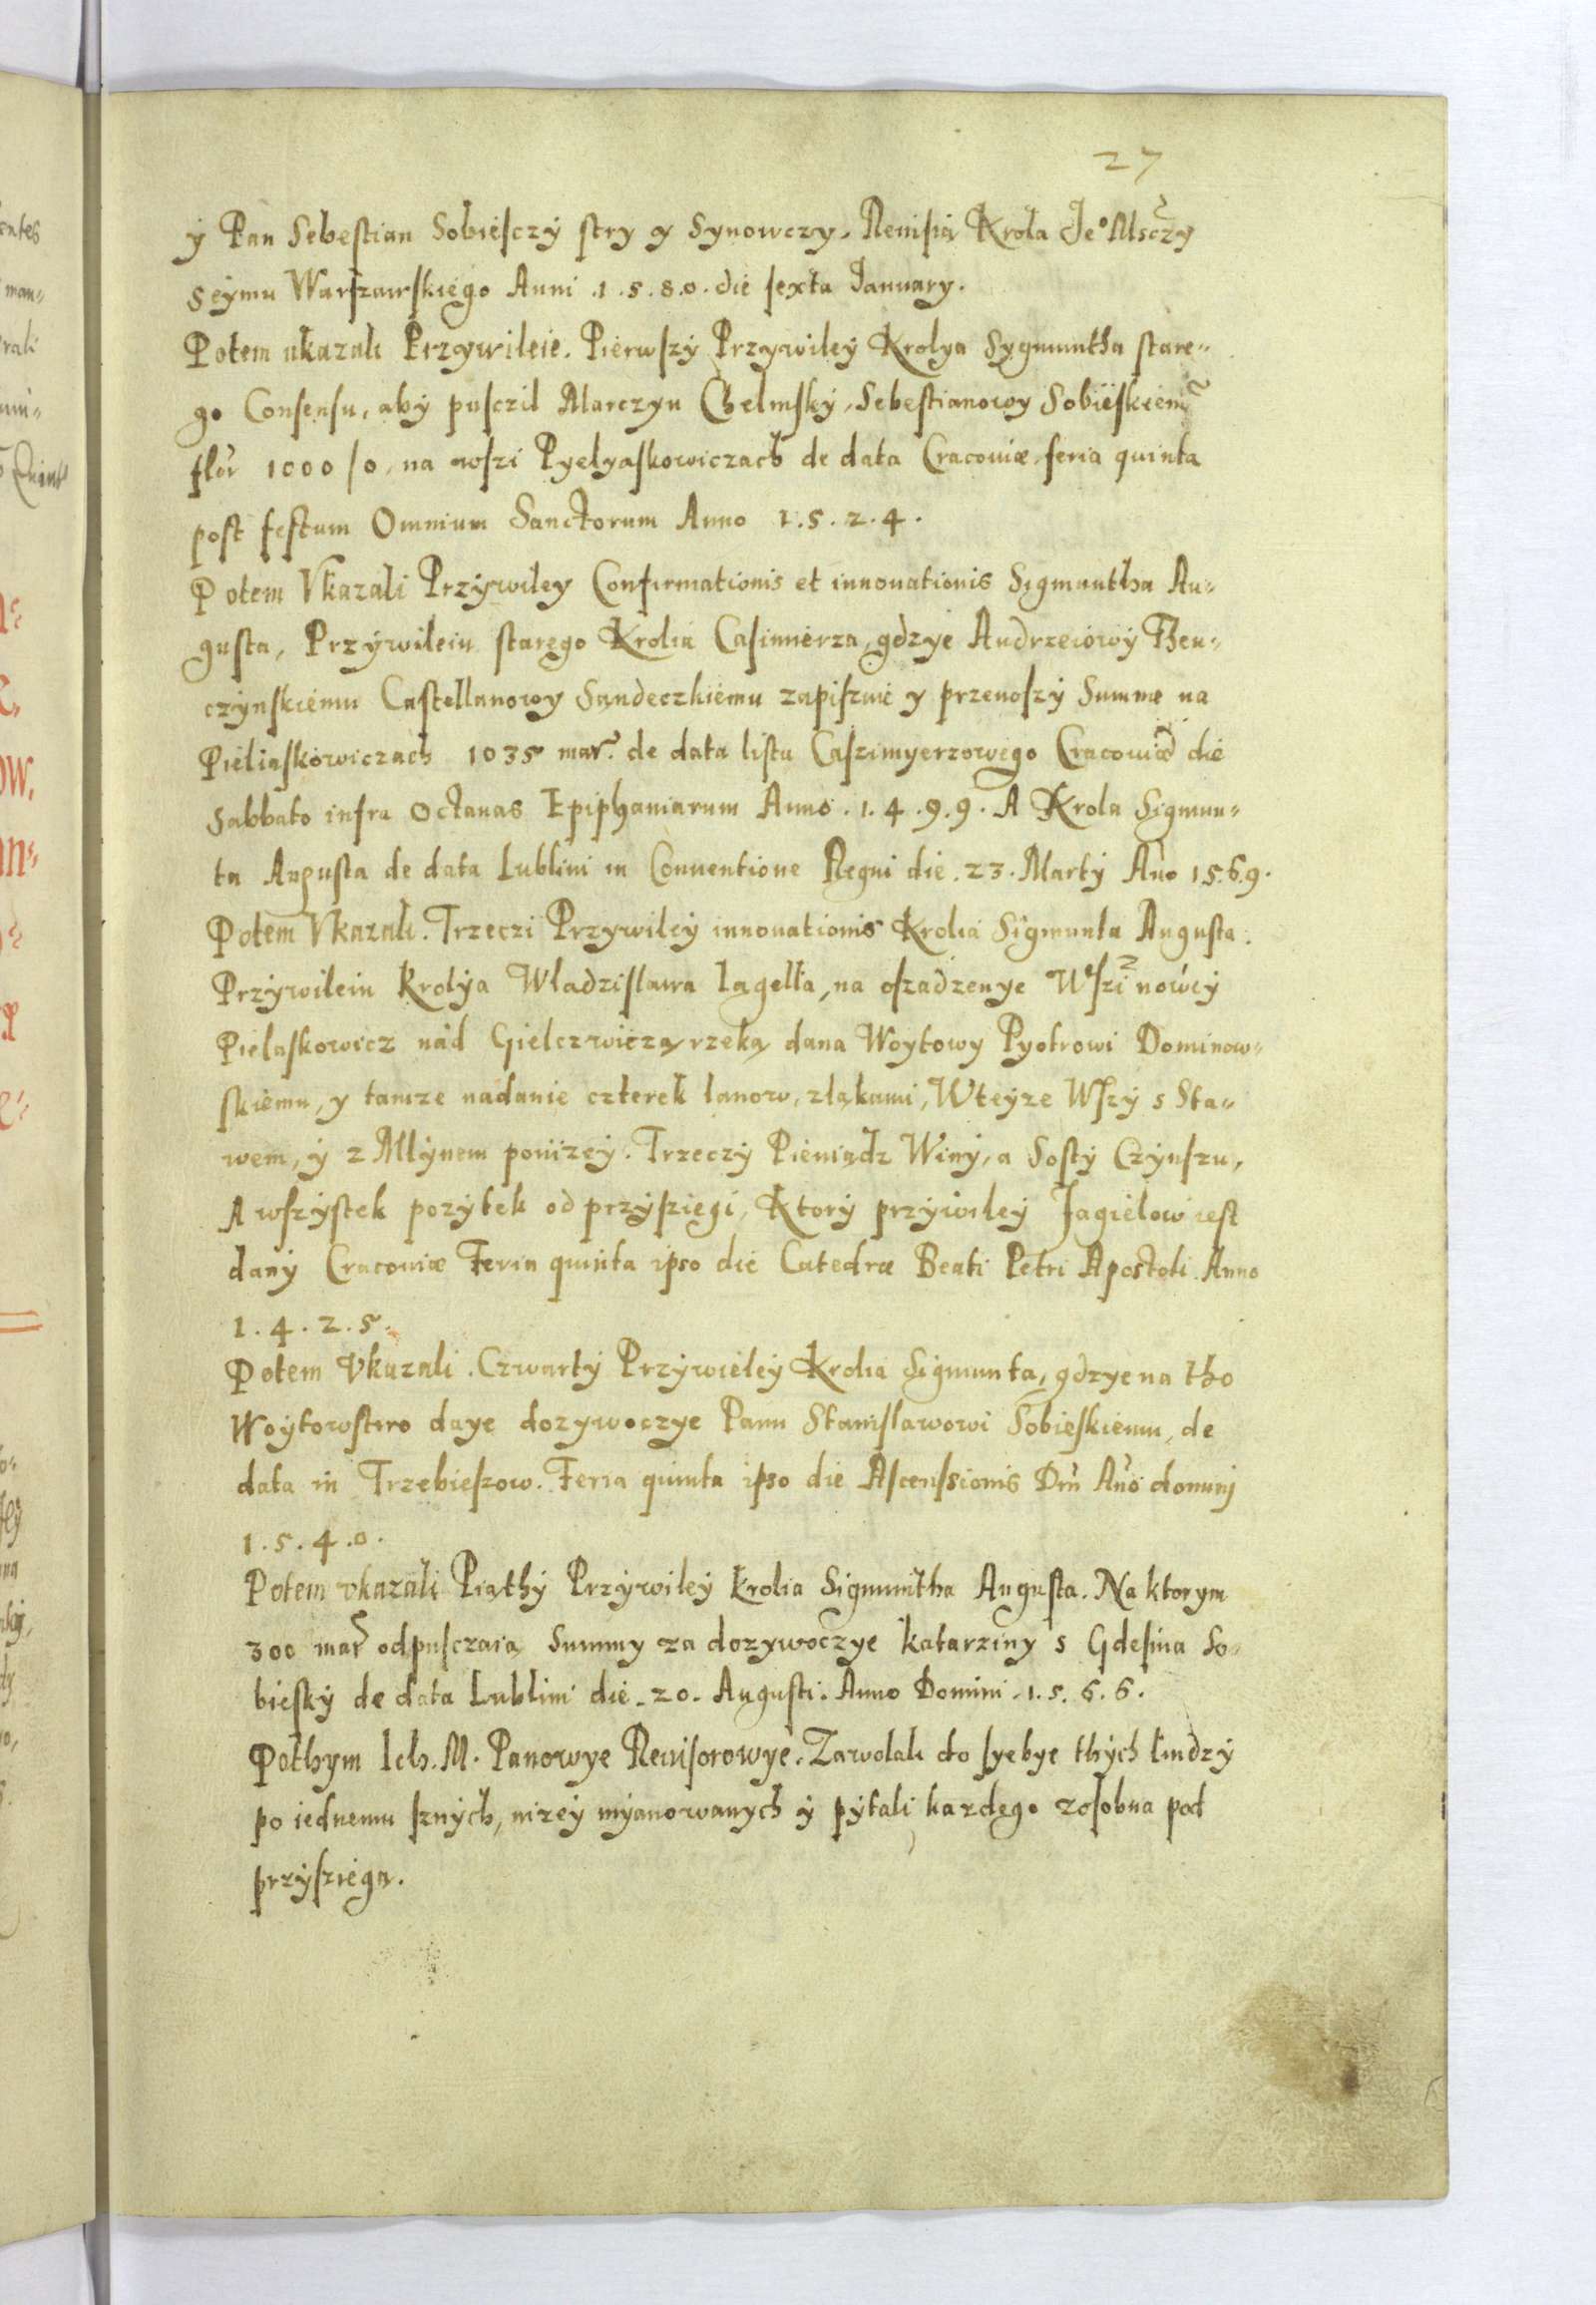 27
ÿ Pan Sebestian Sobiesczÿ stry y Synowczy. Reuisią Krola Je° Msczy
Seÿmu Warszawskiego Anni .1.5.8.0. die sexta Januarÿ.
Potem ukazali Przywileie. Pierwszÿ Przywileÿ Krolya Sygmuntha stare-
go Consensu, abÿ pusczil Marczyn Chelmskÿ, Sebestianowy Sobieskiemu
flor 1000 /0, na wszi Pyelyaskowiczach de data Cracouiæ feria quinta
post festum Omnium Sanctorum Anno 1.5.2.4.
Potem Vkazali Przÿwiley Confirmationis et innouationis Sigmuntha Au-
gusta, Przÿwileiu starego Krolia Casimierza, gdzye Andrzeiowÿ Then-
czÿnskiemu Castellanowy Sandeczkiemu zapisuie y przenoszÿ Summe na
Pieliaskowiczach 1035 mar. de data listu Caszimyerzowego Cracouiæ die
Sabbato infra Octauas Epiphaniarum Anno .1.4.9.9. A Krola Sigmun-
ta Augusta de data Lublini in Conuentione Regni die .23. Martÿ Ano 1.5.6.9.
Potem Vkazali. Trzeczi Przywileÿ innouationis Krolia Sigmunta Augusta.
Przÿwileiu Krolÿa Wladzislawa Iagella, na oszadzenye Wszi noweÿ
Pielaskowicz nad Gielczwiczą rzeką dana Woÿtowy Pyotrowi Dominow-
skiemu, y tamze nadanie czterek lanow, złąkami, Wteÿze Wszÿ s Sta-
wem, ÿ z Młÿnem ponizeÿ. Trzeczÿ Pieniądz Winÿ, a Sostÿ Czÿnszu,
A wszÿstek pozÿtek od przÿsziegi, Ktorÿ przÿwileÿ Jagielow iest
danÿ Cracouiæ Feria quinta ipso die Catedræ Beati Petri Apostoli Anno
1.4.2.5.
Potem Vkazali. Czwartÿ Przÿwieleÿ Krolia Sigmunta, gdzye na tho
Woÿtowstwo daye dozywoczye Panu Stanislawowi Sobieskiemu, de
data in Trzebieszow. Feria quinta ipso die Ascenssionis Dni Ano dominj
1.5.4.0.
Potem vkazali Piąthÿ Przÿwileÿ Krolia Sigmuntha Augusta. Na ktorym
300 mar odpusczaią Summy za dozywoczye Katarziny s Gdesina So-
bieskÿ de data Lublini die .20. Augusti. Anno Domini .1.5.6.6.
Pothym Ich. M. Panowye Reuisorowye. Zawolali do syebye thÿch ludzÿ
po iednemu sznÿch, nizeÿ mÿanowanych ÿ pÿtali kazdego zosobna pod
przÿsziegą.